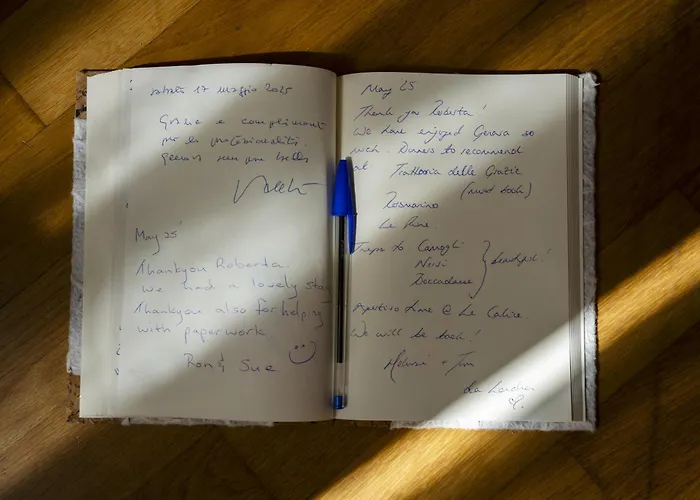 sabato 17 maggio 2025
Grazie e complimenti
per la professionalità.
Genova sempre bella
May 25
Thankyou Roberta.
We had a lovely stay
Thankyou also for helping
with paperwork.
Ron & Sue
May 25
Thank you Roberta!
We have enjoyed Genova so
much. Dinners to recommend
at Trattoria delle Grazie
(must book)
Rosmarino
Le Rune.
Trips to Camogli
Nervi
Boccadasse
beautiful!
Aperitivo time @ Le Calice
We will be back!
+ Tim